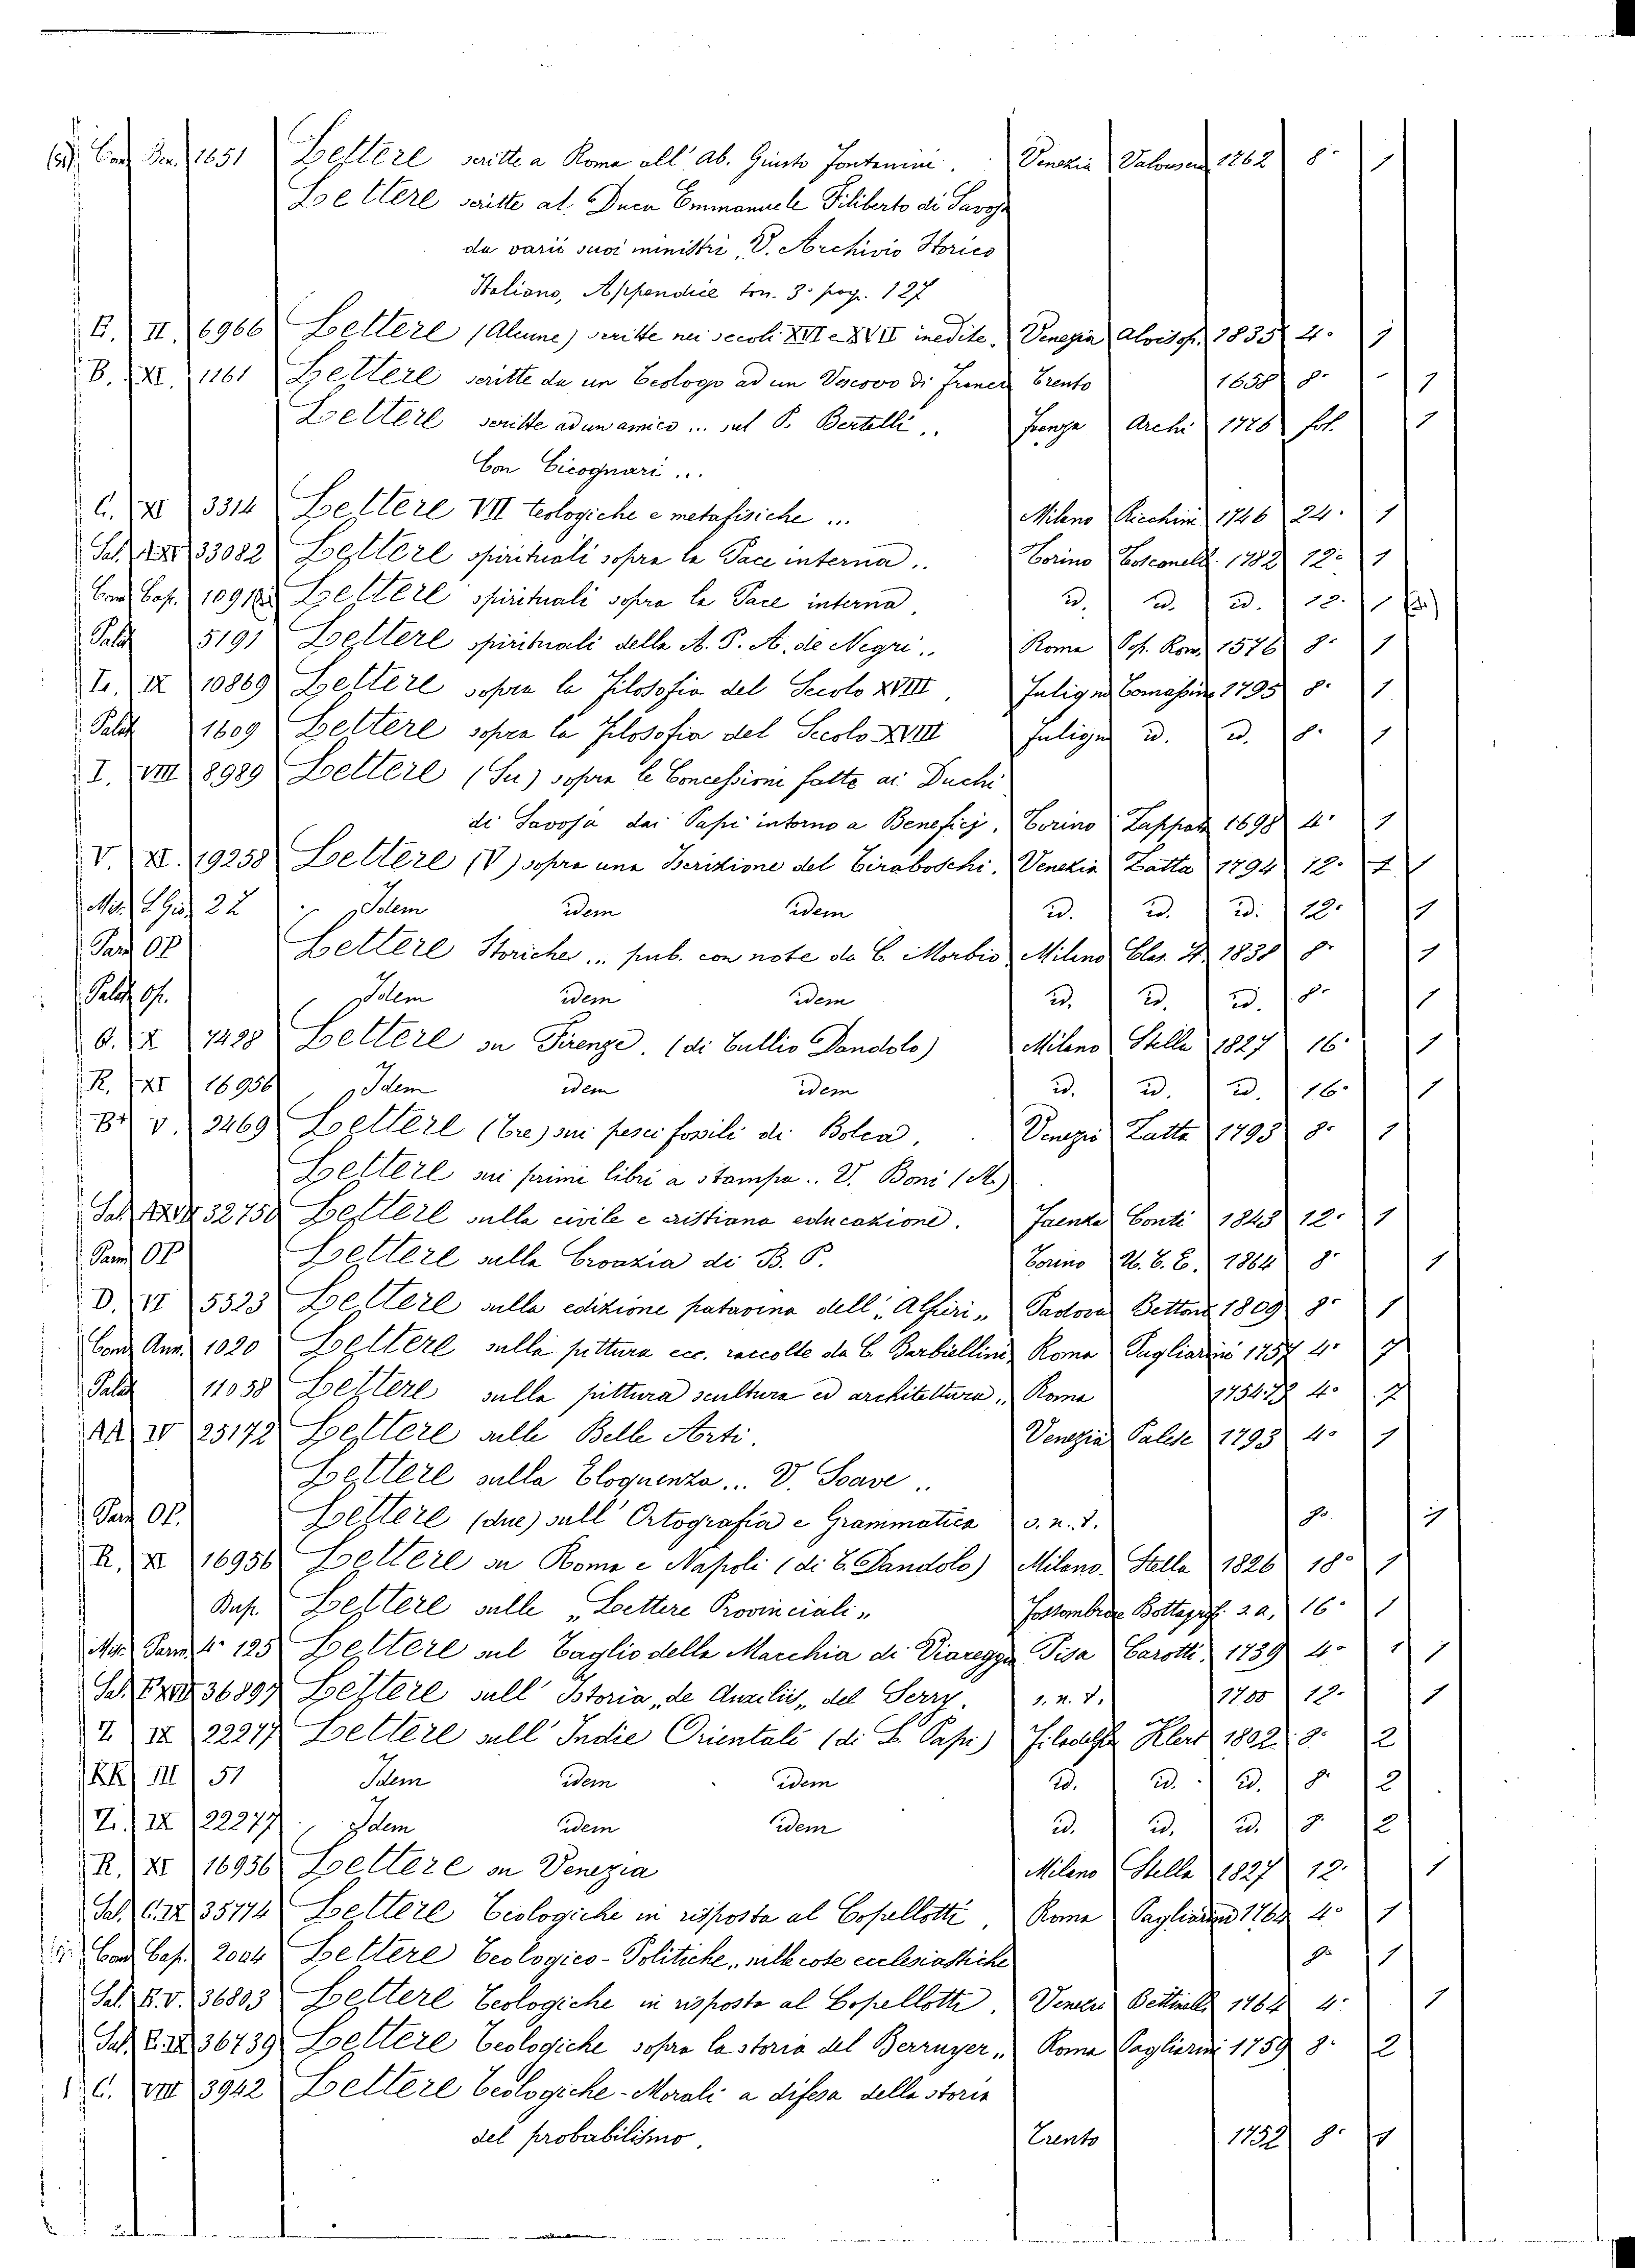 1651 Lettere scritte a Roma all' Ab. Giusto Fontanini. Venezia 1762 8° 1
Lettere scritte al Duca Emmanuele Filiberto di Savoja
da varii suoi ministri, V. Archivio Storico
Italiano, Appendice tom. 3° pag. 127
E. II. 6966 Lettere (Alcune) scritte nei secoli XVI e XVII inedite. Venezia Alvisop. 1835 4° 1
B. XI. 1161 Lettere scritte da un Teologo ad un Vescovo di Francia Trento 1658 8° 1
Lettere scritte ad un amico ... sul P. Bertelli .. Archi 1776 fol. 1
Con Cicognari ...
C. XI 3314 Lettere VII teologiche e metafisiche ... Milano Ricchini 1746 24° 1
Sal. 33082 Lettere spirituali sopra la Pace interna .. Torino Toscanell. 1782 12° 1
Cap. 1091 Lettere spirituali sopra la Pace interna, id. id. id. 12° 1
Palat 5191 Lettere spirituali della A. P. A. de Negri .. Roma Pop. Rom. 1576 8° 1
L. IX 10869 Lettere sopra la Filosofia del Secolo XVIII, Fuligno Tomassini 1795 8° 1
Palat 1609 Lettere sopra la Filosofia del Secolo XVIII Fuligno id. id. 8° 1
I. VIII 8989 Lettere (Sei) sopra le Concessioni fatte ai Duchi
di Savoja dai Papi intorno a Beneficj. Torino Zappata 1698 4° 1
V. XI. 19258 Lettere (V) sopra una Iscrizione del Tiraboschi. Venezia Zatta 1794 12° 1
22 Idem idem idem id. id. id. 12° 1
Parm OP Lettere Storiche ... pub. con note da C. Morbio Milano Clas. It. 1838 8° 1
Palat Op. Idem idem idem id. id. id. 8° 1
O. X 7428 Lettere su Firenze. (di Tullio Dandolo) Milano Stella 1827 16° 1
R. XI 16956 Idem idem idem id. id. id. 16° 1
V. 2469 Lettere (Tre) sui pesci fossili di Bolca. Venezia Zatta 1793 8° 1
Lettere sui primi libri a stampa .. V. Boni (M.)
Sal. 32750 Lettere sulla civile e cristiana educazione. Faenza Conti 1843 12° 1
Parm OP Lettere sulla Croazia di B. P. Torino U. T. E. 1864 8° 1
D. VI 5523 Lettere sulla edizione patavina dell' „Alfieri„ Padova Bettoni 1809 8° 1
Ann. 1020 Lettere sulla pittura ecc. raccolte da C. Barbiellini Roma Pagliarini 1757 4° 7
Palat 11038 Lettere sulla pittura scultura ed architettura .. Roma 4° 7
AA IV 25172 Lettere sulle Belle Arti. Venezia Palese 1793 4° 1
Lettere sulla Eloquenza ... V. Soave ..
Parm OP. Lettere (due) sull' Ortografia e Grammatica s. n. t. 8° 1
R. XI 16956 Lettere su Roma e Napoli (di T. Dandolo) Milano Stella 1826 18° 1
Lettere sulle „Lettere Provinciali„ Fossombrone s. a. 16° 1
Parm 4° 125 Lettere sul Taglio della Macchia di Viareggio Pisa Carotti 1739 4° 1
Sal. 36897 Lettere sull' Istoria „de Auxiliis„ del Serry. s. n. t. 1700 12° 1
Z. IX 22277 Lettere sull' Indie Orientali (di L. Papi) Filadelfia Klert 1802 8° 2
KK III 51 Idem idem idem id. id. id. 8° 2
Z. IX 22277 Idem idem idem id. id. id. 8° 2
R. XI 16956 Lettere su Venezia Milano Stella 1827 12° 1
Sal. C. IX 35774 Lettere Teologiche in risposta al Copellotti, Roma Pagliarini 4° 1
Cap. Lettere Teologico-Politiche .. sulle cose ecclesiastiche 8° 1
Sal. E. V. 36803 Lettere Teologiche in risposta al Copellotti. Venezia Bettinelli 1764 4° 1
Sal. 36739 Lettere Teologiche sopra la storia del Berruyer .. Roma Pagliarini 1759 8° 2
C. VIII 3942 Lettere Teologiche-Morali a difesa della storia
del probabilismo. Trento 1752 8° 1